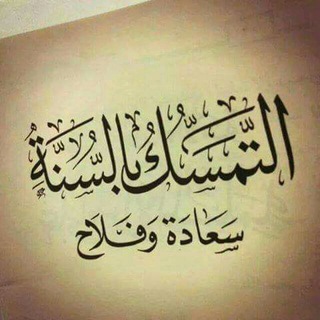 التَّمَسُّكُ بالسُّنَّةِ
سَعَادَة وَفَلَاح